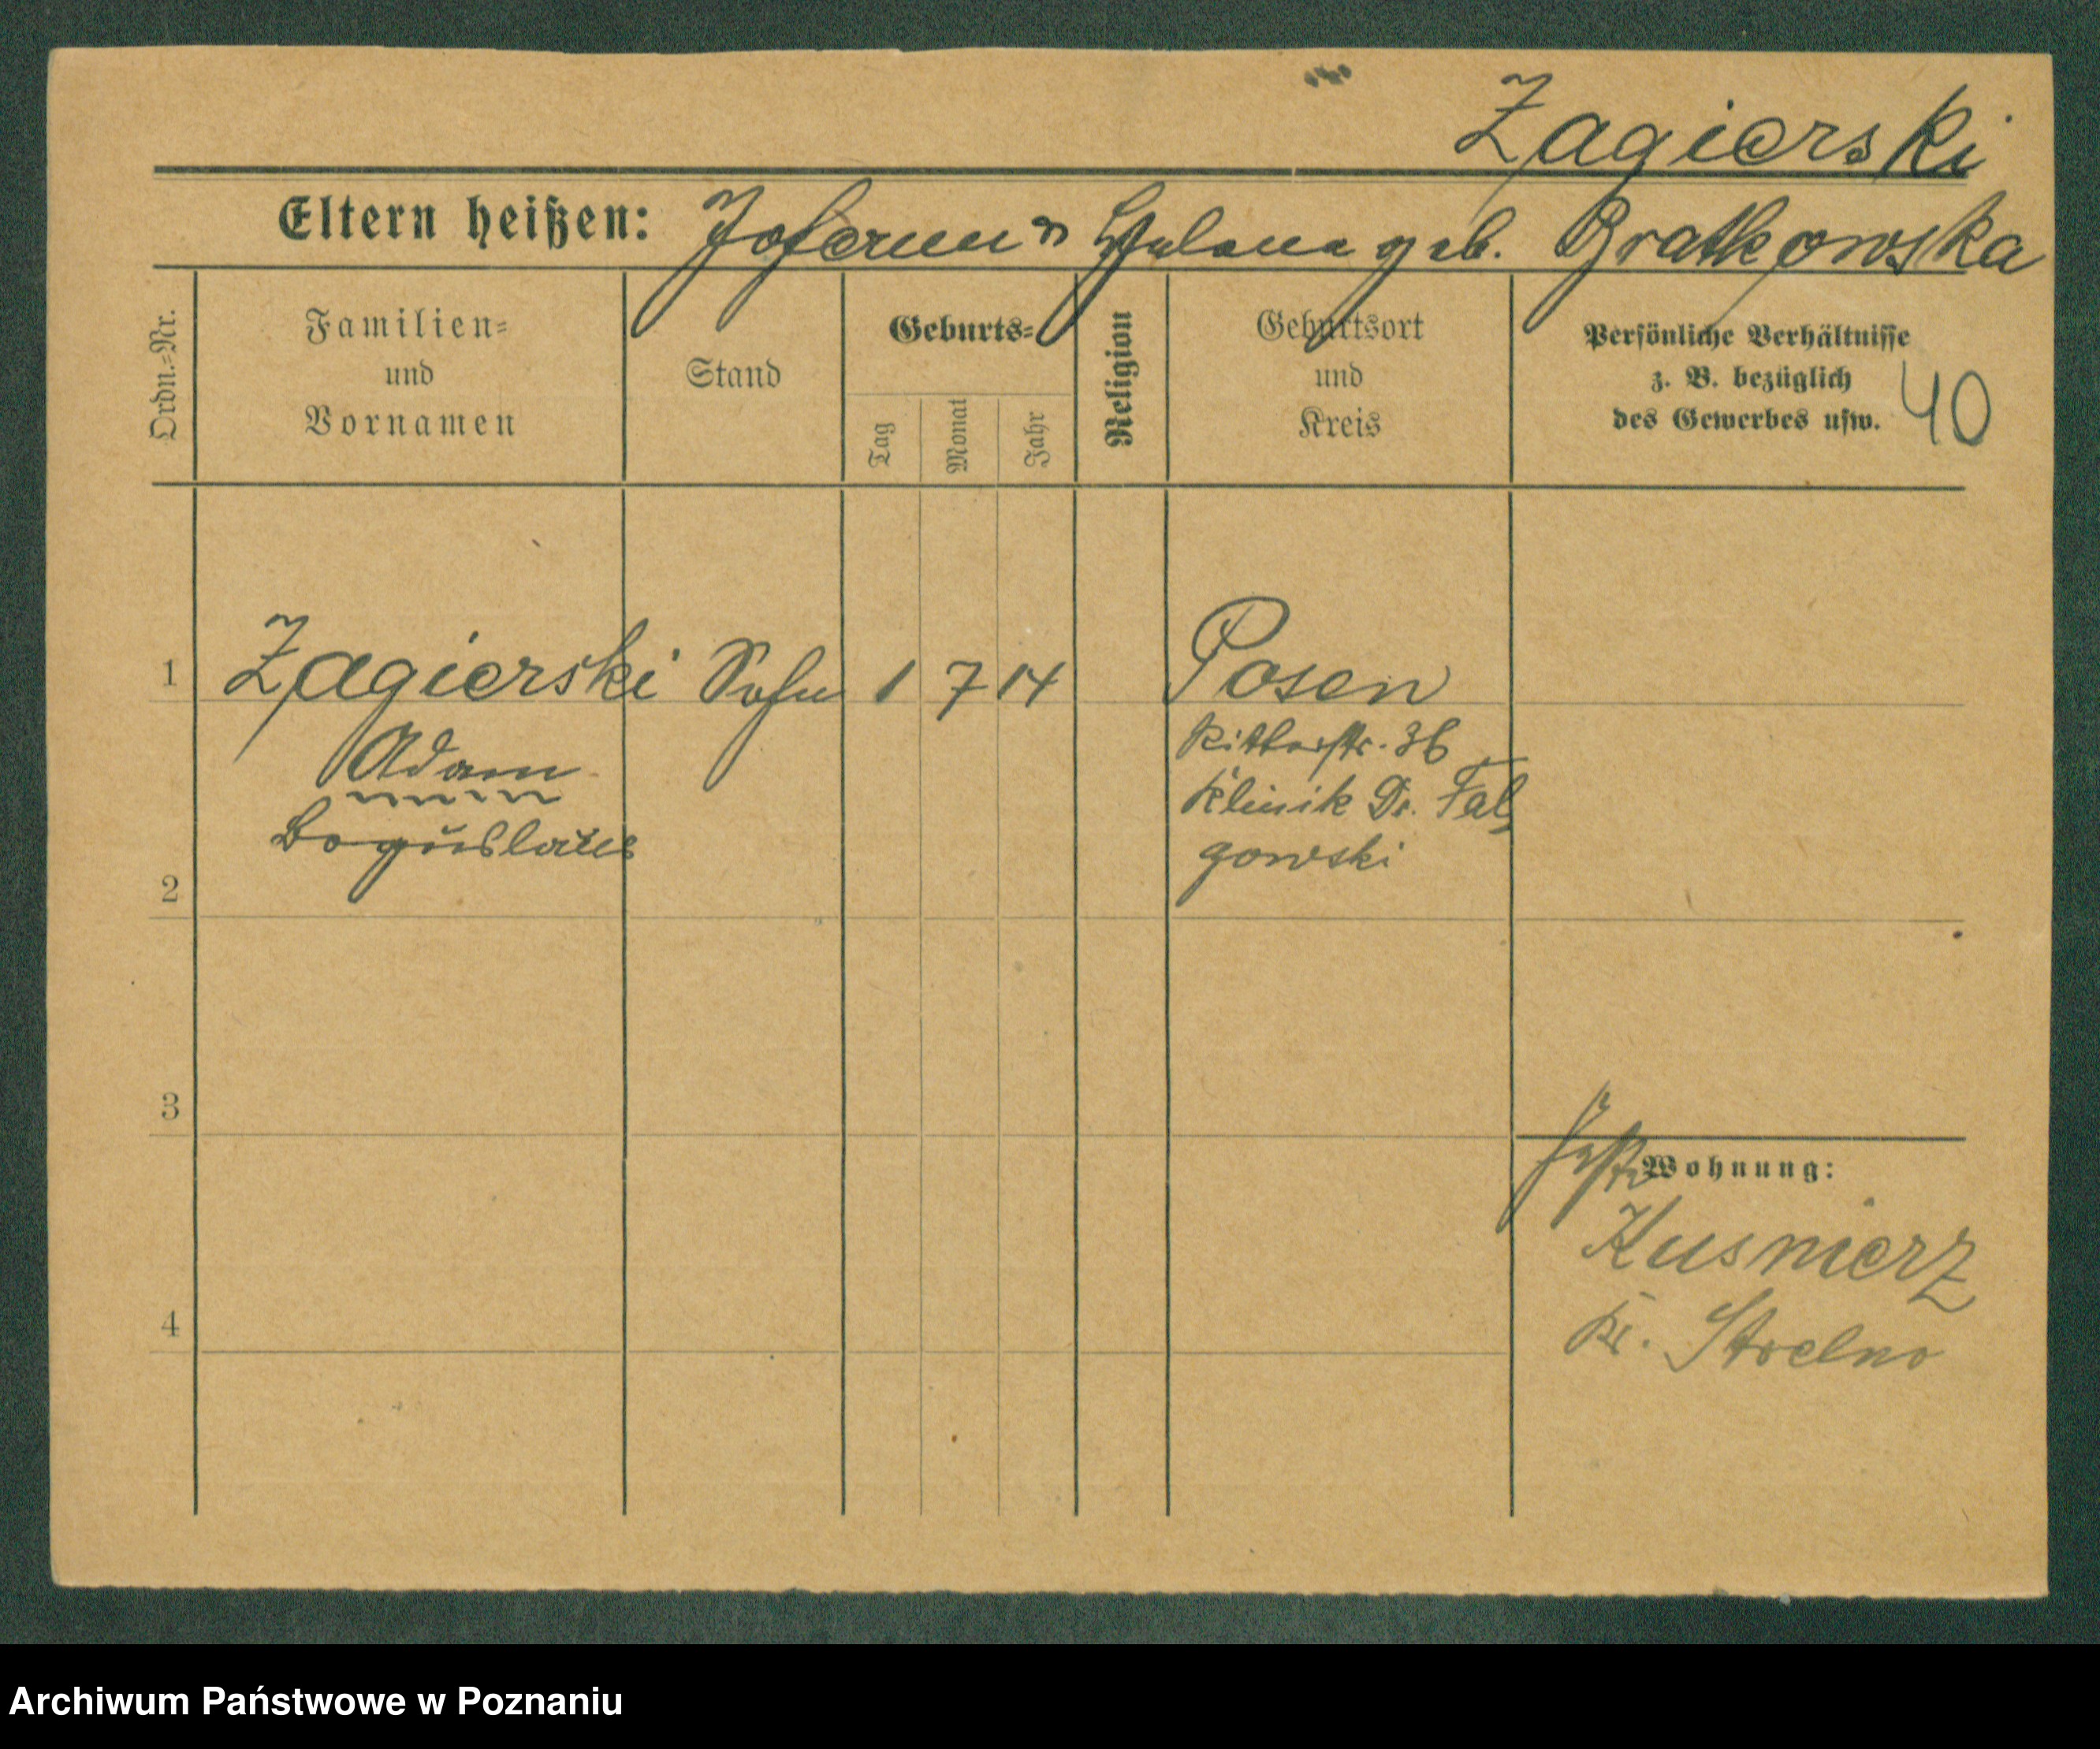 Zagierski
Eltern heißen: Johann u Helena geb. Bratkowska
Ordn.=Nr.
Familien=
und
Vornamen
Stand
Geburts=
Tag
Monat
Jahr
Religion
Geburtsort
und
Kreis
Persönliche Verhältnisse
z. B. bezüglich
des Gewerbes usw.
40
1 Zagierski Sohn 1 7 14 Posen
Adam Ritterstr. 36
Klinik Dr. Fal
Boguslaus
gowski
2
3
Wohnung:
Kusnierz
4
Kr. Strelno
Archiwum Państwowe w Poznaniu